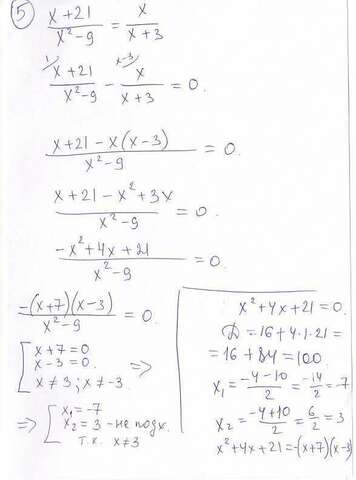 5 (x+21)/(x²-9) = x/(x+3)
1/ x-3/
(x+21)/(x²-9) - x/(x+3) = 0.
(x+21-x(x-3))/(x²-9) = 0.
(x+21-x²+3x)/(x²-9) = 0.
(-x²+4x+21)/(x²-9) = 0.
(-(x+7)(x-3))/(x²-9) = 0.
[ x+7=0
x-3=0. =>
x≠3; x≠-3.
=> [ x₁=-7
x₂=3 - не подх.
т.к. x≠3
x²+4x+21=0.
D=16+4·1·21=
=16+84=100.
x₁=(-4-10)/2=-14/2=-7
x₂=(-4+10)/2=6/2=3
x²+4x+21=-(x+7)(x-3)